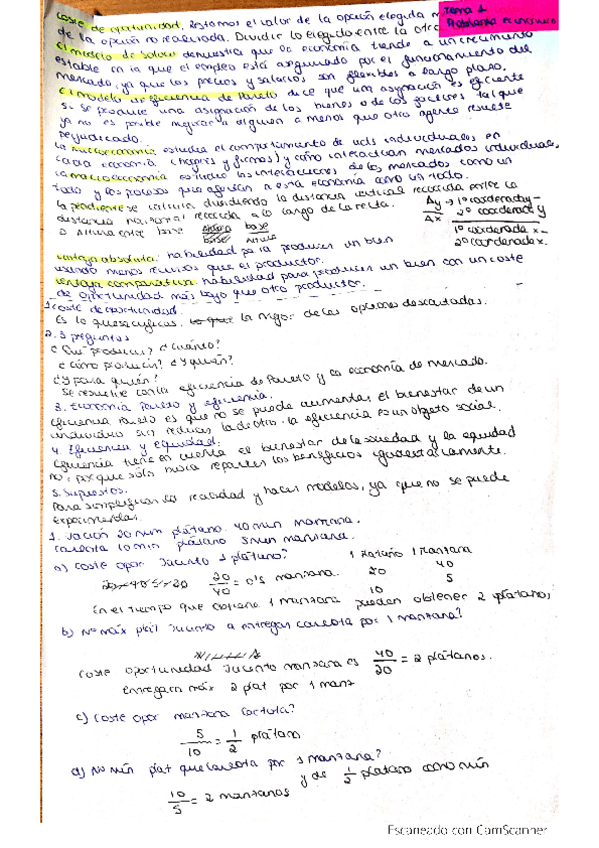 Tema 1
Problema económico
coste de oportunidad. Restamos el valor de la opción elegida
de la opción no realizada. Dividir lo elegido entre la otra
El modelo de Solow demuestra que la economía tiende a un crecimiento
estable en la que el empleo está asegurado por el funcionamiento del
mercado, ya que los precios y salarios son flexibles a largo plazo.
El modelo de eficiencia de Pareto dice que una asignación es eficiente
si se produce una asignación de los bienes o de los factores tal que
ya no es posible mejorar a alguien a menos que otro agente resulte
perjudicado.
La microeconomía estudia el comportamiento de uds individuales en
cada economía (hogares y firmas) y cómo interactúan mercados individuales,
la macroeconomía estudia las interacciones de los mercados como un
todo y los procesos que afectan a esta economía como un todo.
la pendiente se calcula dividiendo la distancia vertical recorrida entre la
distancia horizontal recorrida a lo largo de la recta.
o Altura entre base Altura base
base Altura
Δy → 1º coordenada y -
2º coordenada y
Δx 1º coordenada x -
2º coordenada x.
ventaja absoluta: habilidad para producir un bien
usando menos recursos que el productor.
ventaja comparativa: habilidad para producir un bien con un coste
de oportunidad más bajo que otro productor.
1. coste de oportunidad.
Es lo que sacrificas. lo que la mejor de las opciones descartadas.
2. 3 preguntas
¿Qué producir? ¿Cuánto?
¿Cómo producir? ¿Y quién?
¿Y para quién?
Se resuelve con la eficiencia de Pareto y la economía de mercado.
3. Economía Pareto y eficiencia.
Eficiencia Pareto es que no se puede aumentar el bienestar de un
individuo sin reducir la de otro. la eficiencia es un objeto social.
4. Eficiencia y equidad.
Eficiencia tiene en cuenta el bienestar de la sociedad y la equidad
no, porque sólo busca repartir los beneficios
5. Supuestos.
Para simplificar la realidad y hacer modelos, ya que no se puede
experimentar.
1. 20 min plátano. 40 min manzana.
Carlota 10 min plátano 5 min manzana.
a) coste opor Jacinto 1 plátano? 1 Plátano 1 Manzana
20/40 = 0'5 manzana. 20 40
10 5
En el tiempo que obtiene 1 manzana pueden obtener 2 plátanos,
b) Nº máx plát Jacinto a entregar Carlota por 1 manzana?
Coste oportunidad Jacinto manzana es 40/20 = 2 plátanos.
entregará máx 2 plat por 1 manz
c) Coste opor manzana Carlota?
5/10 = 1/2 plátano
d) Nº mín plat que Carlota por 1 manzana?
10/5 = 2 manzanas y de 1/2 plátano como mín
Escaneado con CamScanner